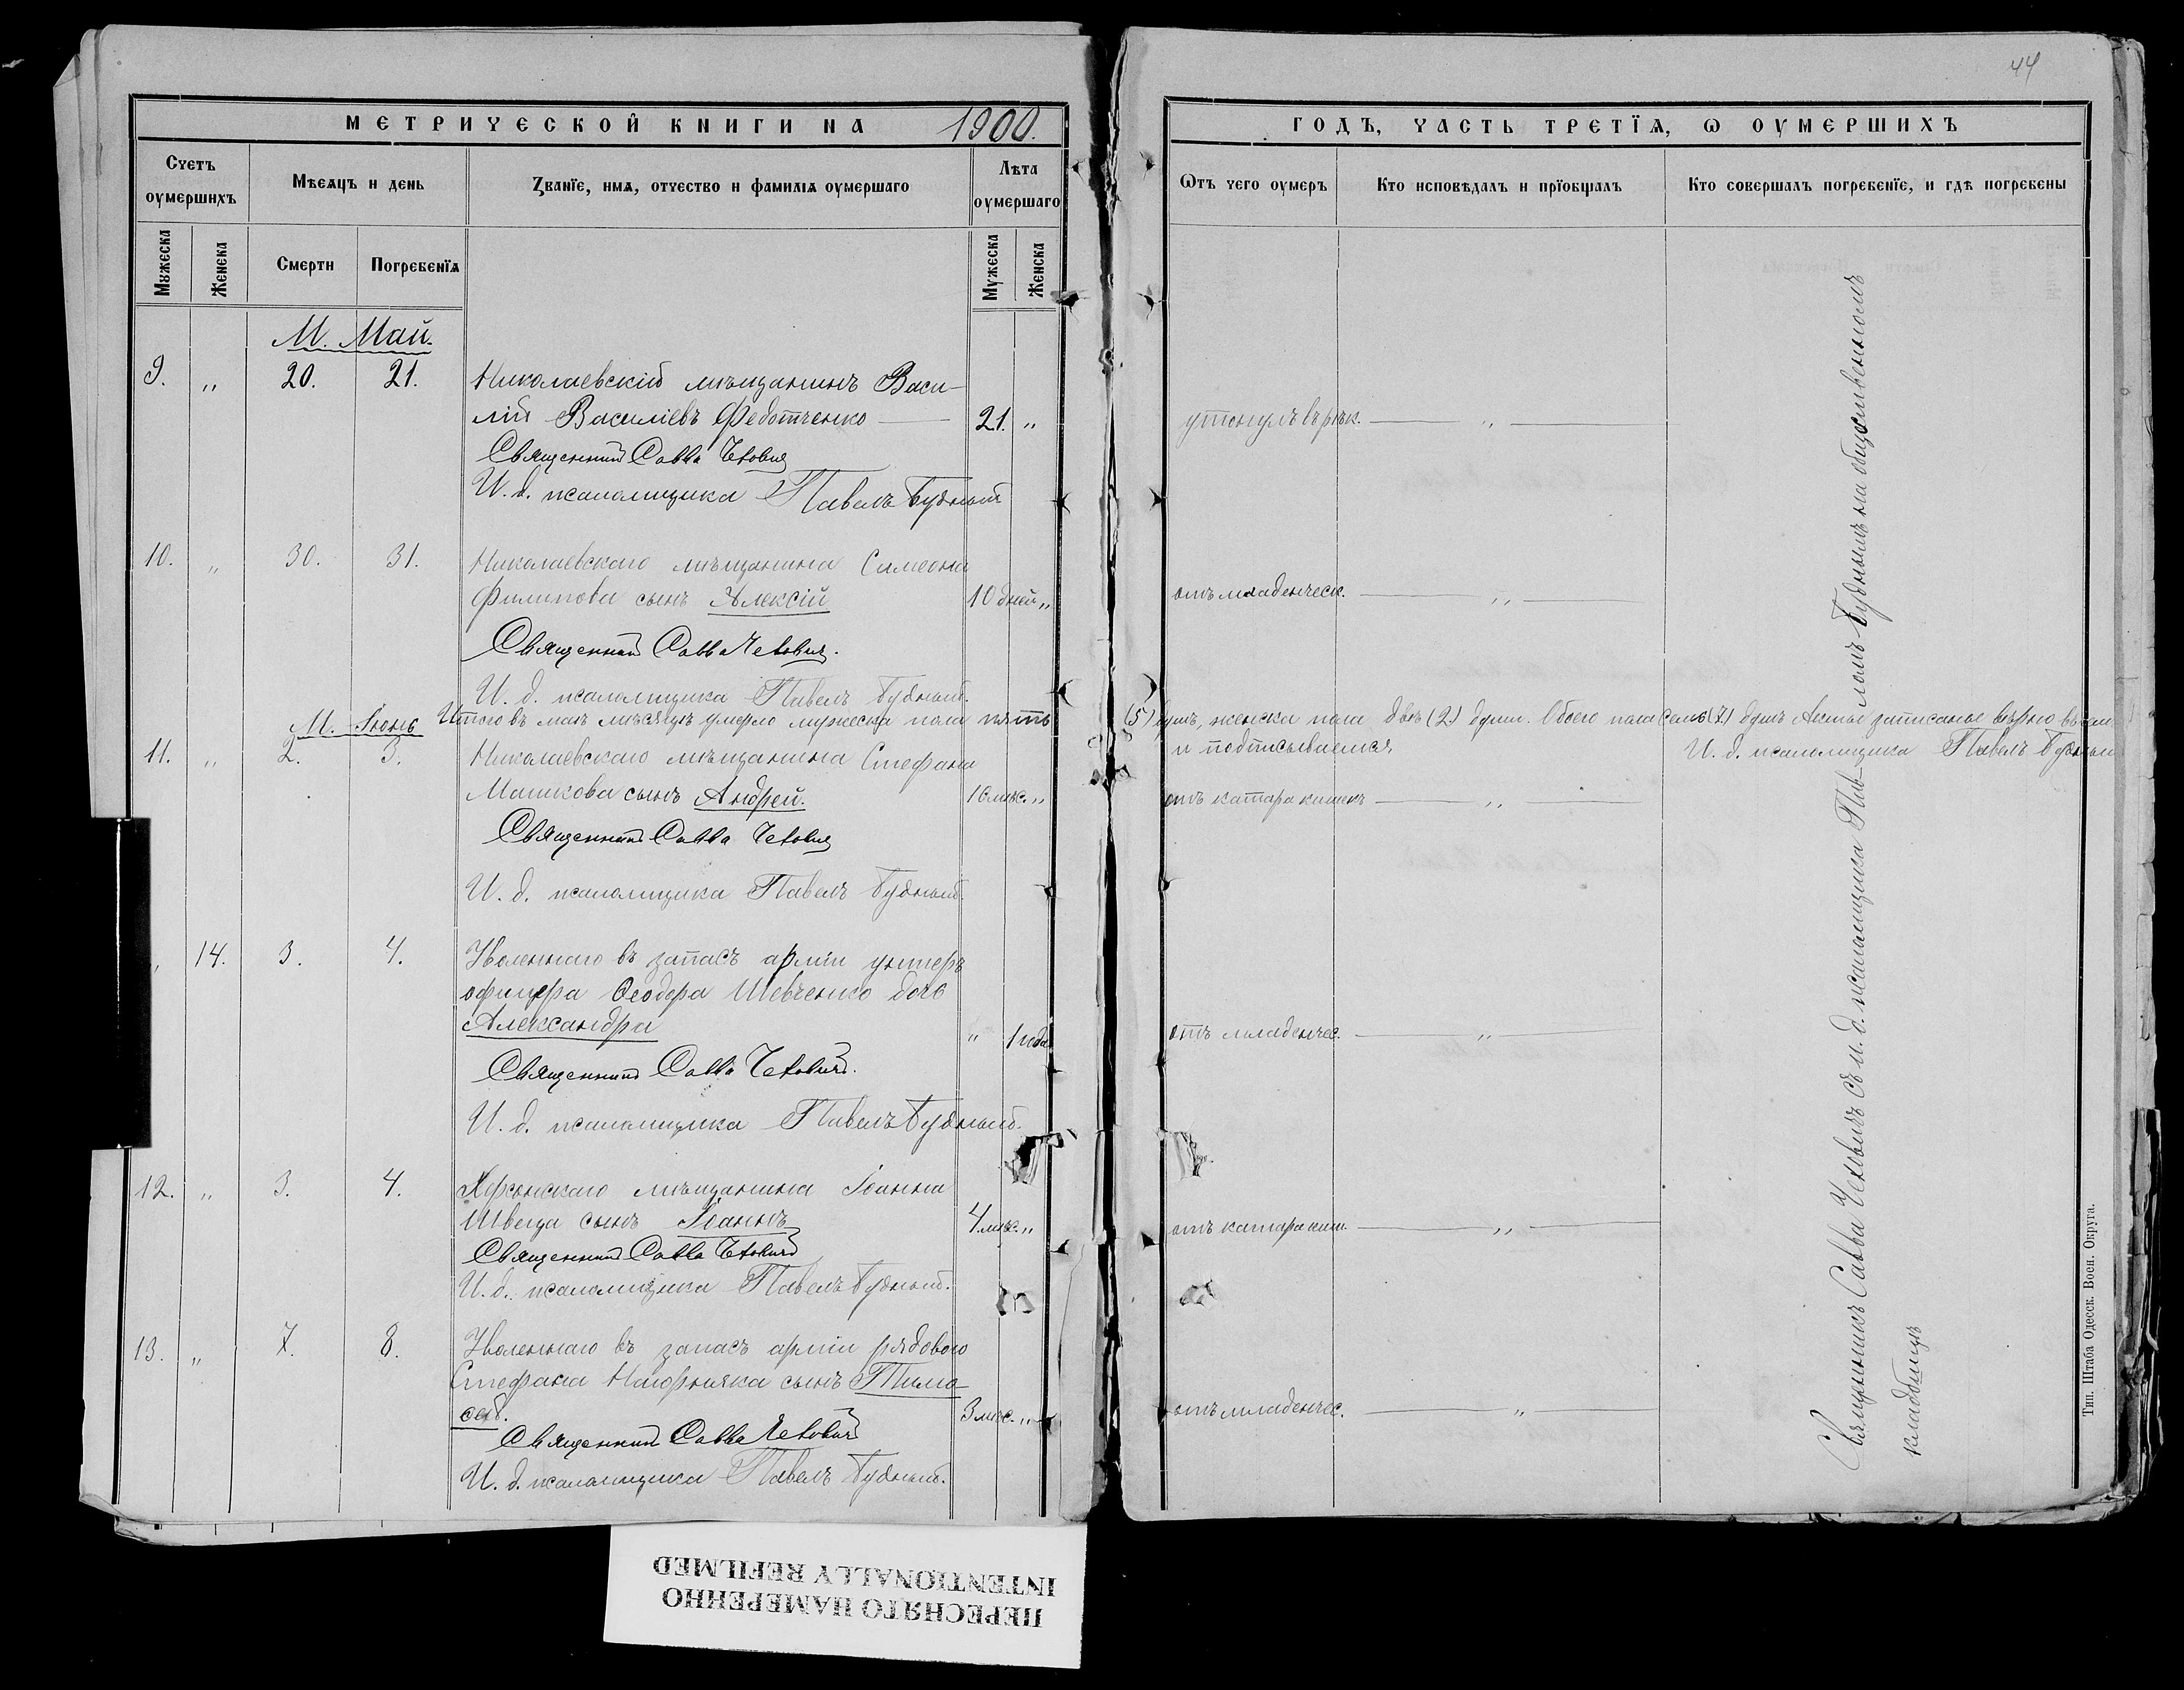 44
МЕТРИЧЕСКОЙ КНИГИ НА 1900.
ГОДЪ, ЧАСТЬ ТРЕТІѦ, Ѡ ОУМЕРШИХЪ
Счетъ оумершихъ
Мѣсѧцъ и день
Званїе, имѧ, отчество и фамилїѧ оумершаго
Лѣта оумершаго
Ѿтъ чего оумеръ
Кто исповѣдалъ и прїобщалъ
Кто совершалъ погребенїе, и гдѣ погребены
Мужеска
Женска
Смерти
Погребенїѧ
Мужеска
Женска
М. Май.
9. „ 20. 21. Николаевскій мѣщанинъ Васи-
лій Василіевъ Федотченко — 21. „ утонулъ въ рѣк. — „ —
Священникъ Савва Чехович
И. д. псаломщика Павелъ Будный
10. „ 30. 31. Николаевскаго мѣщанина Симеона
Филипова сынъ Алексій 10 дней „ отъ младенческ. — „ —
Священникъ Савва Чехович.
И. д. псаломщика Павелъ Будный.
Итого въ маѣ мѣсяцѣ умерло мужеска пола пять (5) душъ, женска пола двѣ (2) души. Обоего пола семь (7) душъ
записаны вѣрно
и подписываемся
И. д. псаломщика Павелъ Будный
М. Іюнь
11. „ 2. 3. Николаевскаго мѣщанина Стефана
Машкова сынъ Андрей. 10 мѣс. „ отъ катара кишекъ — „ —
Священникъ Савва Чехович
И. д. псаломщика Павелъ Будный.
„ 14. 3. 4. Уволеннаго въ запасъ арміи унтеръ
офицера Ѳеодора Шевченко дочь
Александра „ 1 года отъ младенчес. — „ —
Священникъ Савва Чеховичъ.
И. д. псаломщика Павелъ Будный.
12. „ 3. 4. Херсонскаго мѣщанина Іоанна
Швеца сынъ Іоаннъ 4 мѣс. „ отъ катара киш. — „ —
Священникъ Савва Чеховичъ
И. д. псаломщика Павелъ Будный.
13. „ 7. 8. Уволеннаго въ запасъ арміи рядового
Стефана Нагорняка сынъ Тимо-
ѳей. 3 мѣс. „ отъ младенчес. — „ —
Священникъ Савва Чеховичъ
И. д. псаломщика Павелъ Будный.
Священникъ Савва Чеховичъ съ и. д. псаломщика Пав-ломъ Буднымъ на общественномъ
кладбищѣ
Тип. Штаба Одесск. Воен. Округа.
ПЕРЕСНЯТО НАМЕРЕННО
INTENTIONALLY REFILMED